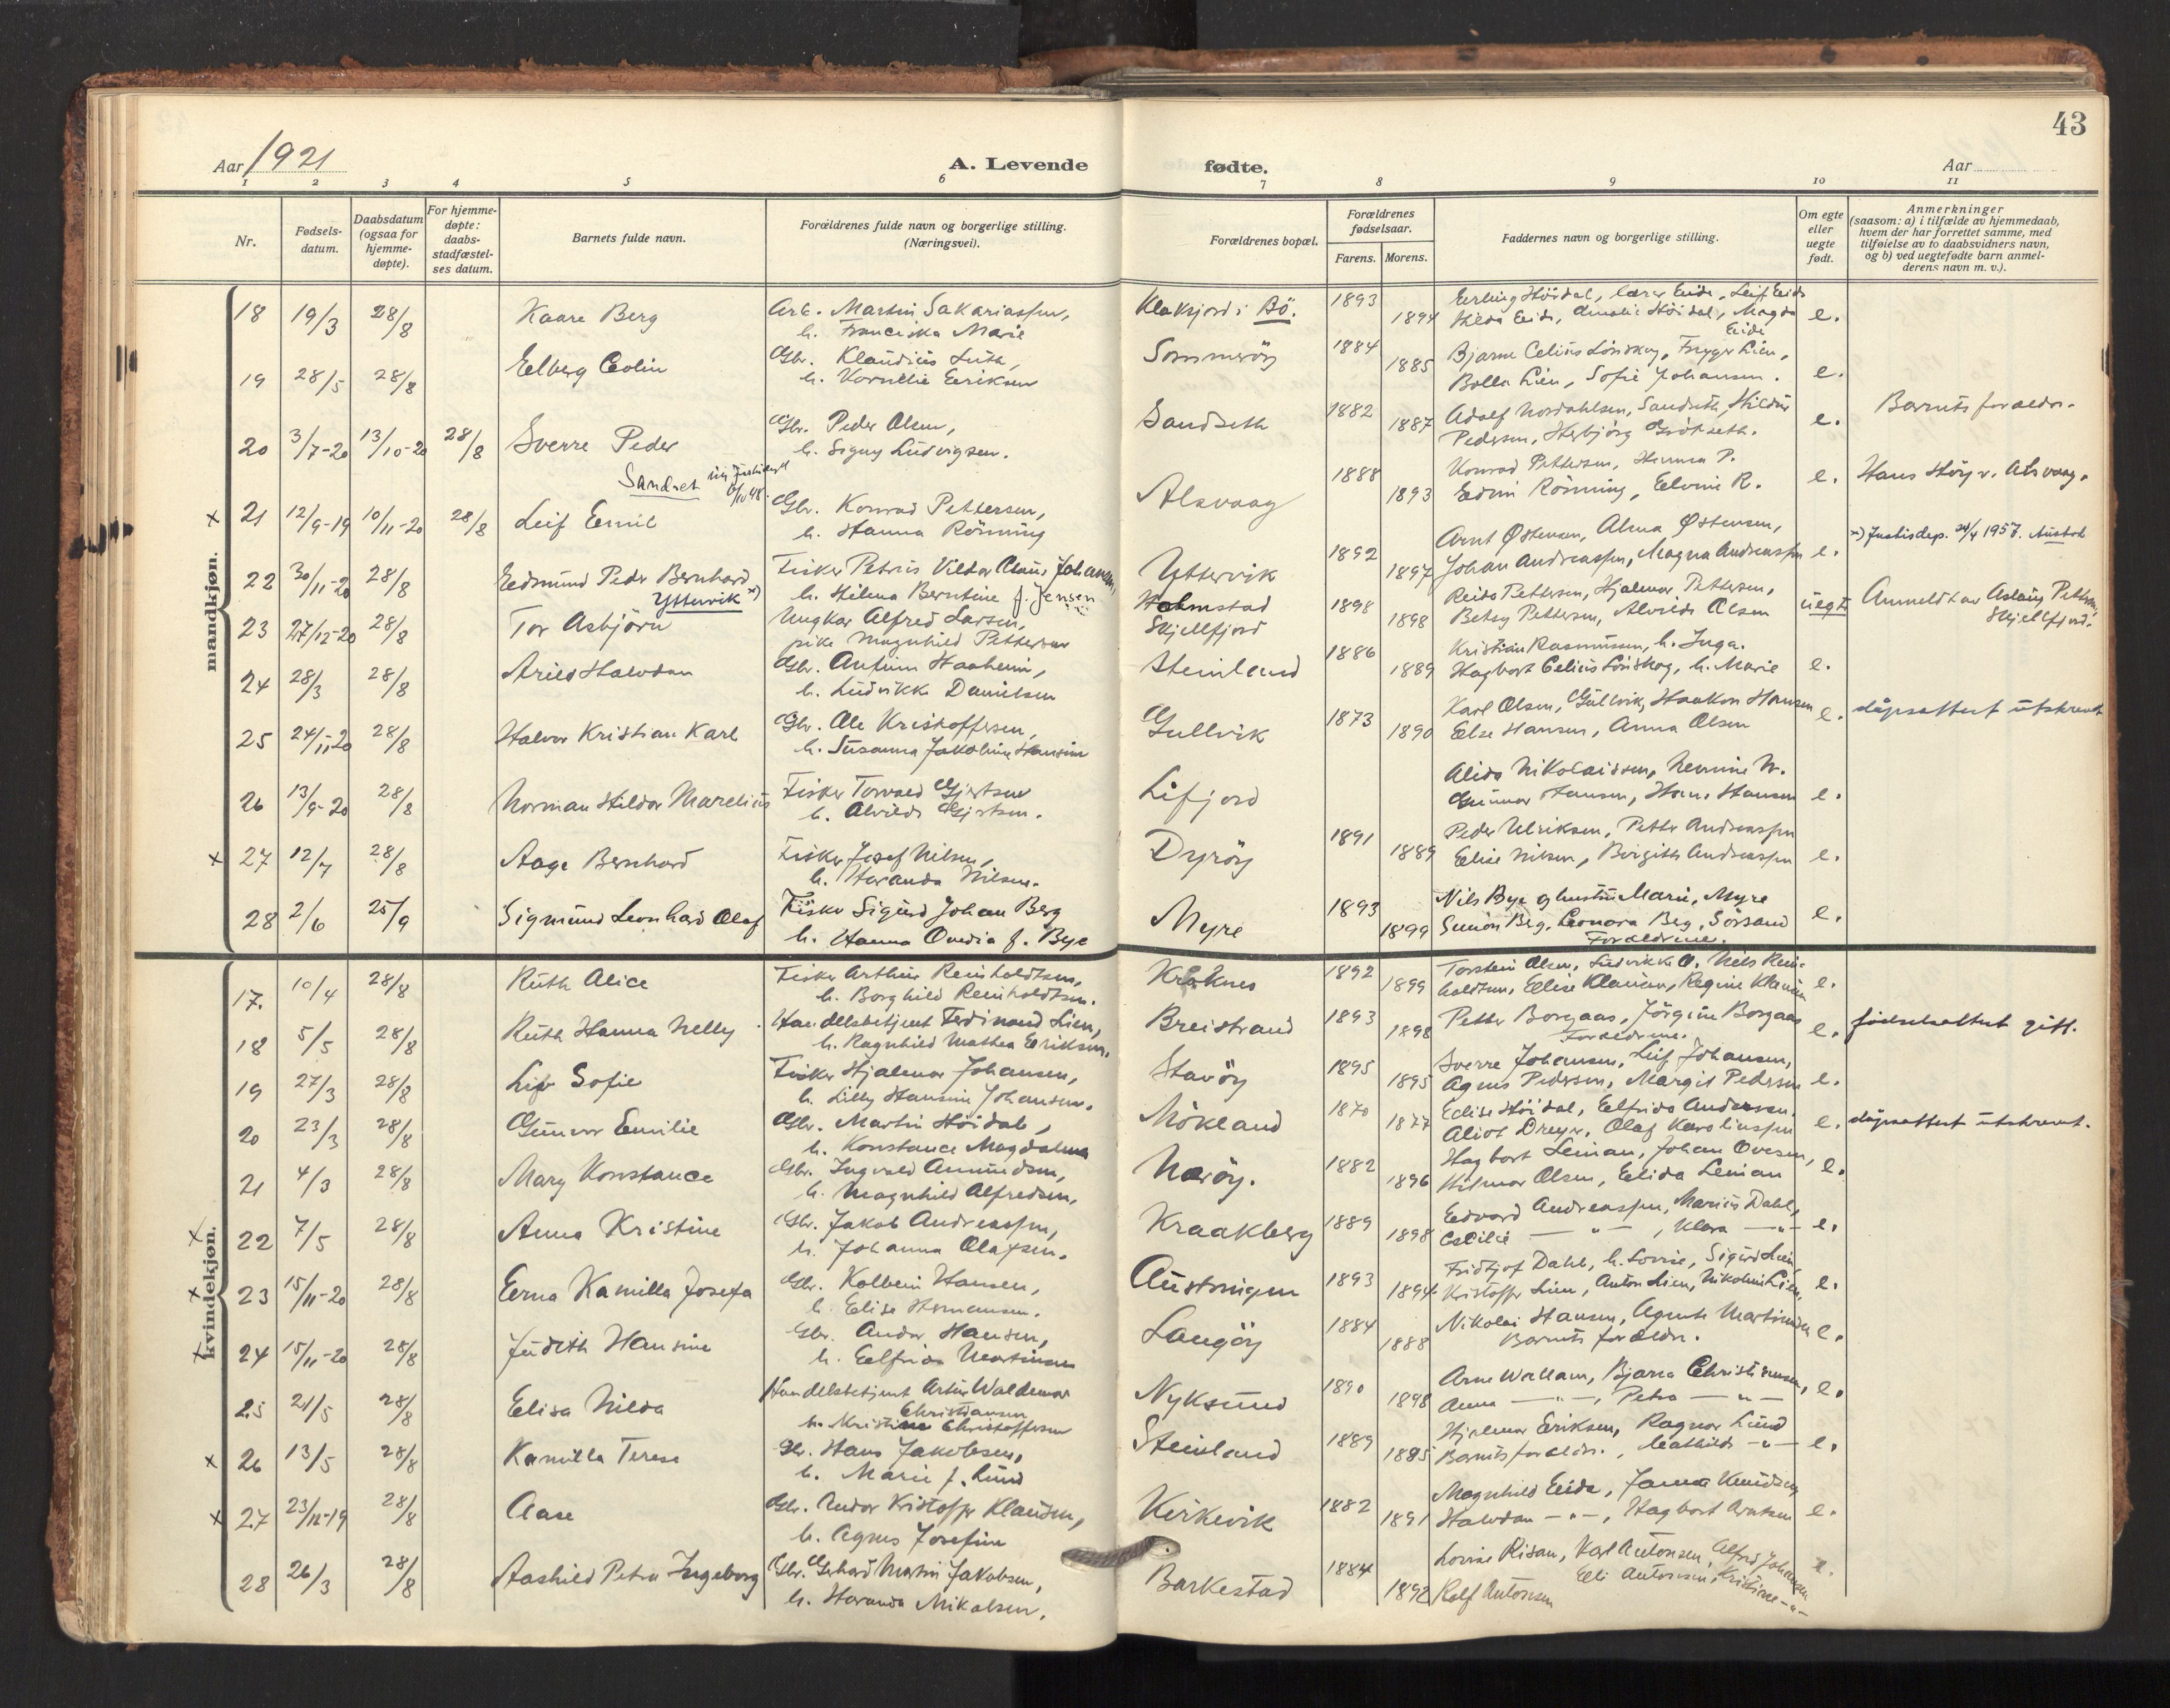 43
Aar 1921
A. Levende
fødte.
Aar
1 2 3 4 5 6 7 8 9 10 11
Nr.
Fødsels-
datum.
Daabsdatum
(ogsaa for
hjemme-
døpte).
For hjemme-
døpte:
daabs-
stadfæstel-
ses datum.
Barnets fulde navn.
Forældrenes fulde navn og borgerlige stilling.
(Næringsvei).
Forældrenes bopæl.
Forældrenes
fødselsaar.
Farens. Morens.
Faddernes navn og borgerlige stilling.
Om egte
eller
uegte
født.
Anmerkninger
(saasom: a) i tilfælde av hjemmedaab,
hvem der har forrettet samme, med
tilføielse av to daabsvidners navn,
og b) ved uegtefødte barn anmel-
derens navn m. v.).
mandkjøn.
18 19/3 28/8 Kaare Berg Arb. Martin Sakariassen, Klaksjord i Bö. 1893
h. Franciska Marie 1894 Hilda Eide, Amalie Höidal, Magda e.
Eide
19 28/5 28/8 Elberg Colin Gbr. Klaudius Luth, Sommeröy 1884
h. Kornelie Eriksen 1885 Bolla Lien, Sofie Johansen. e.
20 3/7-20 13/10-20 28/8 Sverre Peder Gbr. Peder Olsen, Sandseth 1882 Adolf Nordahlsen, Sandseth, Hildur Barnets forældr.
h. Signy Ludvigsen. 1887 Pedersen, e.
Sandset
x 21 12/9-19 10/11-20 28/8 Leif Emil Gbr. Konrad Pettersen, Alsvaag 1888 Konrad Pettersen, Hanna P.
h. Hanna Rönning 1893 Edvin Rönning, Elvine R. e. Hans Höyv. Alsvaag.
22 30/11-20 28/8 Edmund Peder Bernhard Fisker Petrus Vildor Claus Johansen, Yttervik 1892 Arnt Østensen, Alma Østensen,
Yttervik x) h. Hilma Berntine f. Jensen 1897 Johan Andreassen, Magna Andreassen e. x) Justisdep. 24/4 1957.
23 27/12-20 28/8 Tor Asbjörn Ungkar Alfred Larsen, Holmstad 1898 Reidar Pettersen, Hjalmar Pettersen, uegte Anmeldt av Aslaug Pettersen,
pike Magnhild Pettersen Skjellfjord 1898 Betsy Pettersen, Alvilde Olsen Skjellfjord.
24 28/3 28/8 Arild Halvdan Gbr. Anfinn Haaheim, Steinland 1886 Kristian Rasmussen, h. Inga.
h. Ludvikke Danielsen 1889 Hagbart Celius Lönskog, h. Marie e.
25 24/11-20 28/8 Halvor Kristian Karl Gbr. Ole Kristoffersen, Gullvik 1873 Karl Olsen, Gullvik, Haakon Hansen e. dåpsattest utskrevet
h. Susanna Jakobine Hansine 1890 Else Hansen, Anna Olsen
26 13/9-20 28/8 Norman Hildor Marelius Fisker Torvald Gjertsen Lifjord Alida Nikolaisen, Hermine N.
h. Alvilde Gjertsen. Gunnar Hansen, Hans Hansen e.
x 27 12/7 28/8 Aage Bernhard Fisker Josef Nilsen, Dyröy 1891 Peder Ulriksen, Petter Andreassen
h. Haranda Nilsen. 1889 Elise Nilsen, Birgith Andreassen e.
28 2/6 25/9 Sigmund Leonhard Olaf Fisker Sigurd Johan Berg Myre 1893 Nils Bye og hustru Marie, Myre
h. Hanna Ovedia f. Bye 1899 Simon Berg, Leonora Berg, Sörsand e.
Forældrene.
kvindekjøn.
17. 10/4 28/8 Ruth Alice Fisker Arthur Reinholdtsen, Kraknes 1892 Torstein Olsen, Ludvikke O. Nils Rein-
h. Borghild Reinholdtsen. 1899 holdtsen, Elise Klausen, Regine Klausen e.
18 5/5 28/8 Ruth Hanna Nelly Handelsbetjent Ferdinand Lien, Breistrand 1893 Petter Borgaas, Jörgine Borgaas
h. Ragnhild Mathea Eriksen. 1898 Forældrene. e. fødselsattest gitt.
19 27/3 28/8 Liv Sofie Fisker Hjalmar Johansen, Stavöy 1895 Sverre Johansen, Leif Johansen,
h. Lilly Hansine Johansen. 1895 Agnes Pedersen, Margit Pedersen e.
20 23/3 28/8 Gunvor Emilie Gbr. Martin Höidal, Mökland 1870 Edise Höidal, Elfrida Andersen.
h. Konstance Magdalena 1877 Aliot Dreyer, Olaf Karoliussen e. dåpsattest utskrevet.
21 4/3 28/8 Mary Konstance Gbr. Ingvald Amundsen, Naröy. 1882 Hagbart Leinan, Johan Ovesen,
h. Magnhild Alfredsen, 1896 Hilmar Olsen, Elida Leinan e.
x 22 7/5 28/8 Anna Kristine Gbr. Jakob Andreassen, Kraakberg 1889 Edvard Andreassen, Marius Dahl,
h. Johanna Olafsen. 1898 Cecilie — " —, Klara — " — e.
x 23 15/11-20 28/8 Erna Kamilla Josefa Gbr. Kolbein Hansen, Austningen 1893 Fridtjof Dahl, h. Lovise, Sigurd Lien,
h. Elise Hermansen. 1894 Kristoffer Lien, Anton Lien, Nikoline Lien, e.
x 24 15/11-20 28/8 Judith Hansine Gbr. Andor Hansen, Langöy 1884 Nikolai Hansen, Agnete Martinsen
h. Elfrida Martinsen 1888 Barnets forældr. e.
25 21/5 28/8 Elisa Nilda Handelsbetjent Artur Waldemar Nyksund 1890 Arne Wallam, Bjarne Christiansen,
Christiansen
h. Kristine Christoffersen 1898 Anna — " —, Petra — " — e.
x 26 13/5 28/8 Kamilla Terese Gbr. Hans Jakobsen, Steinland 1889 Hjalmar Eriksen, Ragnar Lund
h. Marie f. Lund 1885 Barnets forældr., Mathilde — " — e.
x 27 23/12-19 28/8 Aase Gbr. Andor Kristoffer Klausen, Kirkevik 1882 Magnhild Eide, Janna Knudsen
h. Agnes Josefine 1891 Halvdan — " —, Hagbart Arntsen e.
28 26/3 28/8 Aashild Petra Ingeborg Gbr. Gerhard Martin Jakobsen, Barkestad 1884 Lovise Risan, Karl Antonsen, Alfred Johansen e.
h. Haranda Mikalsen. 1892 Rolf Antonsen Elli Antonsen, Kristine — " —